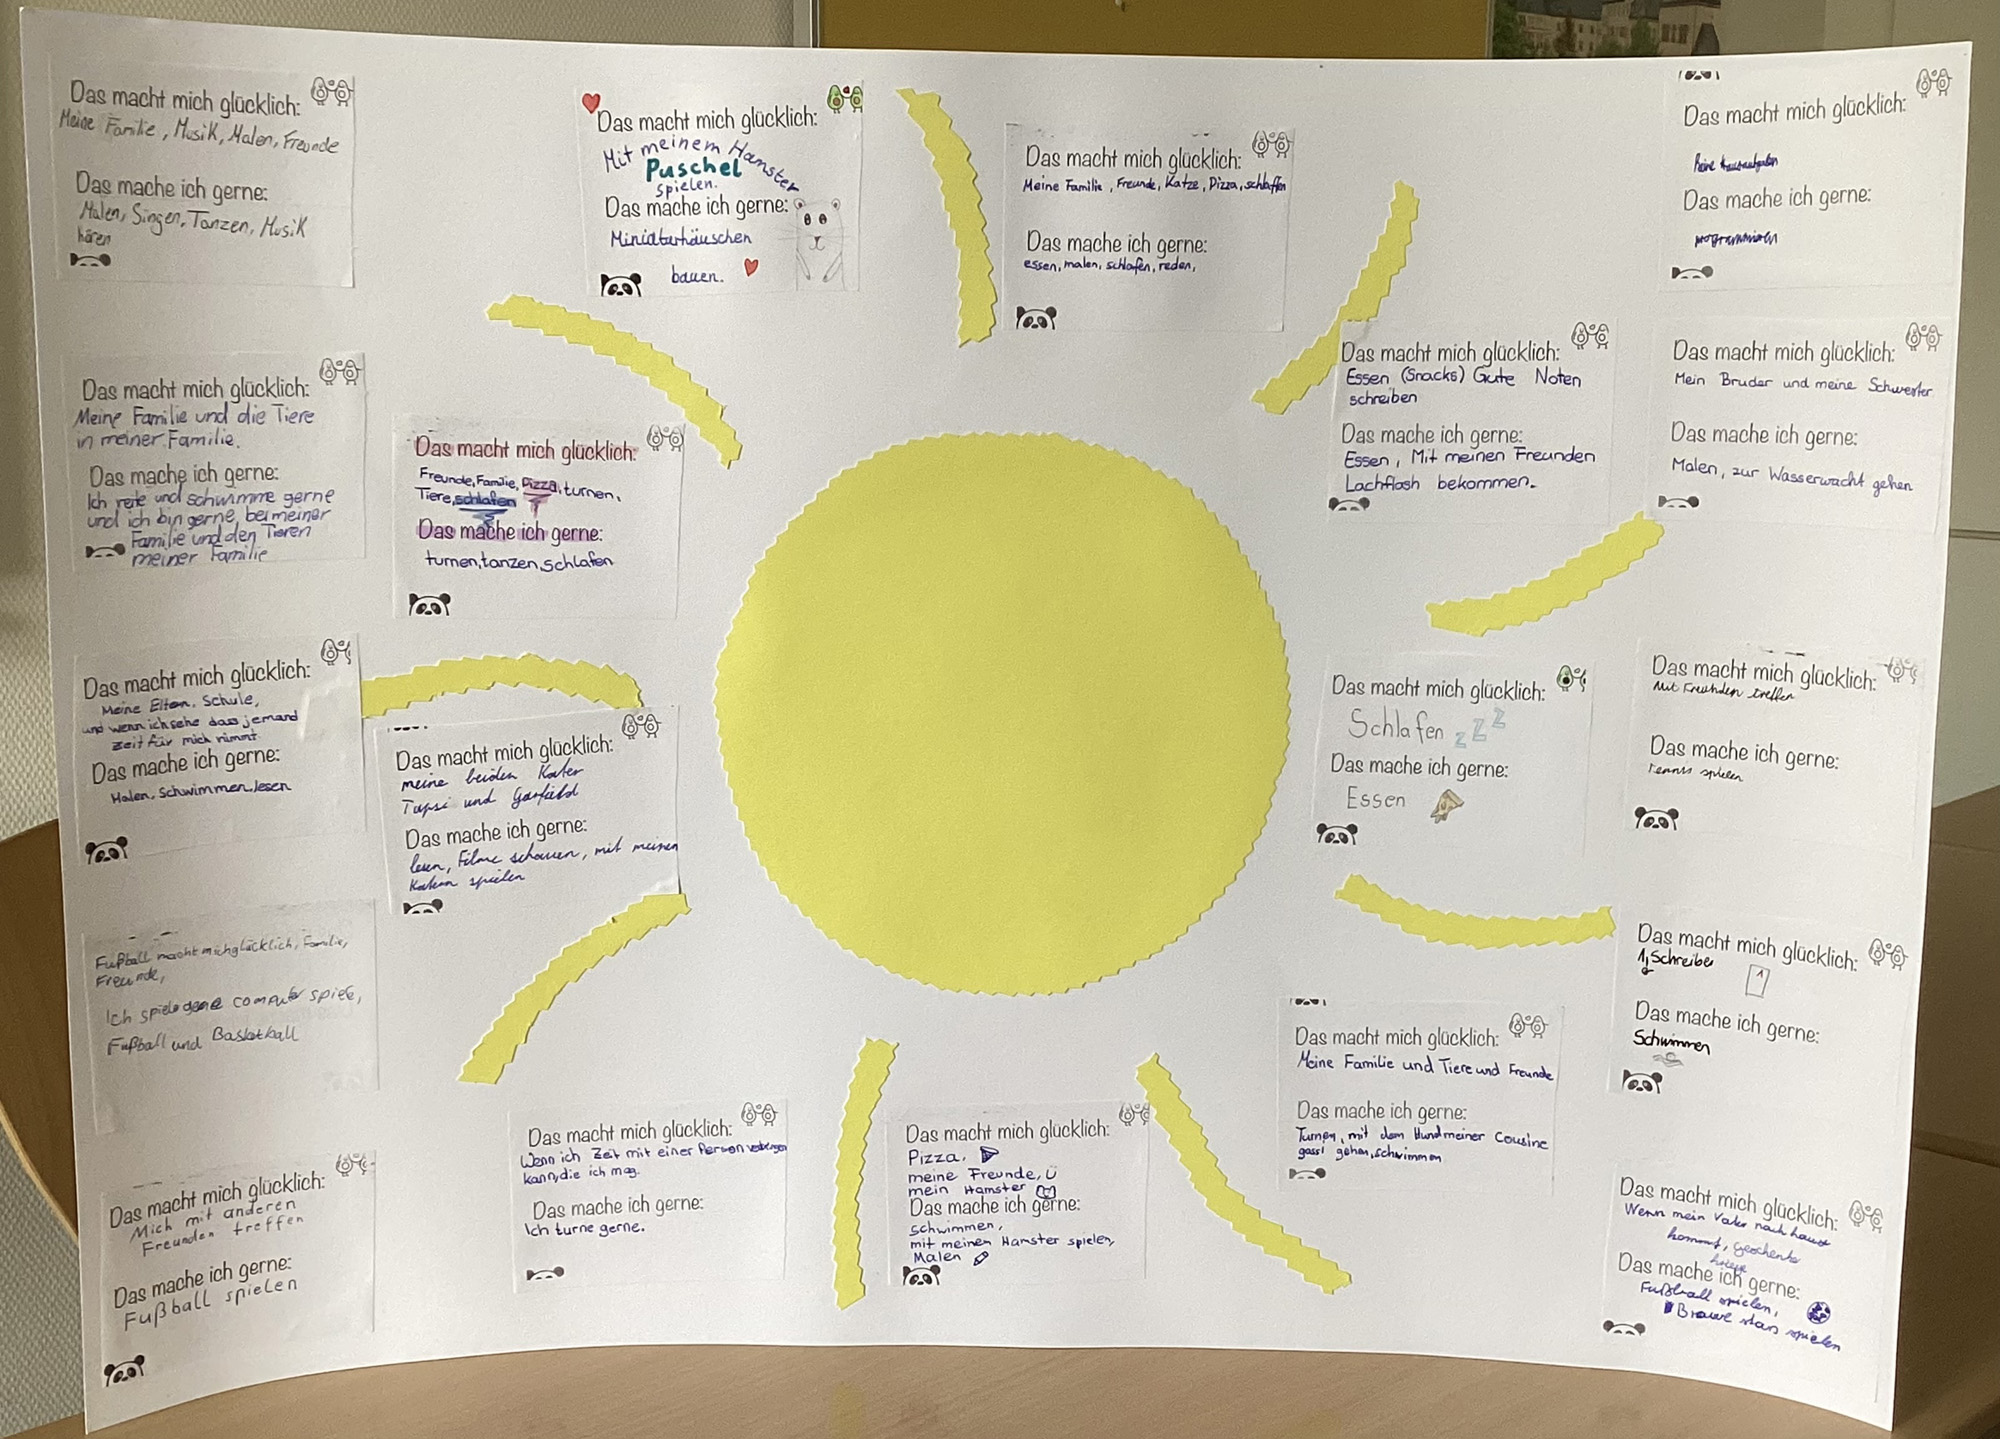 Das macht mich glücklich:
Meine Familie, Musik, Malen, Freunde
Das mache ich gerne:
Malen, Singen, Tanzen, Musik
hören
Das macht mich glücklich:
Mit meinem Hamster
Puschel
spielen.
Das mache ich gerne:
Miniaturhäuschen
bauen.
Das macht mich glücklich:
Meine Familie, Freunde, Katze, Pizza, schlaffen
Das mache ich gerne:
essen, malen, schlafen, reden,
Das macht mich glücklich:
Keine Hausaufgaben
Das mache ich gerne:
programmieren
Das macht mich glücklich:
Meine Familie und die Tiere
in meiner Familie.
Das mache ich gerne:
Ich reite und schwimme gerne
und ich bin gerne bei meiner
Familie und den Tieren
meiner Familie
Das macht mich glücklich:
Freunde, Familie, Pizza, turnen,
Tiere, schlafen
Das mache ich gerne:
turnen, tanzen, schlafen
Das macht mich glücklich:
Essen (Snacks) Gute Noten
schreiben
Das mache ich gerne:
Essen, Mit meinen Freunden
Lachflash bekommen.
Das macht mich glücklich:
Mein Bruder und meine Schwester
Das mache ich gerne:
Malen, zur Wasserwacht gehen
Das macht mich glücklich:
Meine Eltern, Schule,
und wenn ich sehe dass jemand
zeit für mich nimmt.
Das mache ich gerne:
Malen, Schwimmen, lesen
Das macht mich glücklich:
meine beiden Kater
Tapsi und Garfield
Das mache ich gerne:
lesen, Filme schauen, mit meinen
Katern spielen
Das macht mich glücklich:
Schlafen zZZ
Das mache ich gerne:
Essen
Das macht mich glücklich:
Mit Freunden treffen
Das mache ich gerne:
tennis spielen
Fußball macht mich glücklich, Familie,
Freunde,
Ich spiele gerne computer spiele,
Fußball und Basketball
Das macht mich glücklich:
1, Schreiben
1
Das mache ich gerne:
Schwimmen
Das macht mich glücklich:
Meine Familie und Tiere und Freunde
Das mache ich gerne:
Turnen, mit dem Hund meiner Cousine
gassi gehen, schwimmen
Das macht mich glücklich:
Mich mit anderen
Freunden treffen
Das mache ich gerne:
Fußball spielen
Das macht mich glücklich:
Wenn ich Zeit mit einer Person verbringen
kann, die ich mag.
Das mache ich gerne:
Ich turne gerne.
Das macht mich glücklich:
Pizza,
meine Freunde,
mein Hamster
Das mache ich gerne:
schwimmen,
mit meinen Hamster spielen,
Malen
Das macht mich glücklich:
Wenn mein Vater nach hause
kommt, geschenke
kriege
Das mache ich gerne:
Fußball spielen,
Brawl stars spielen